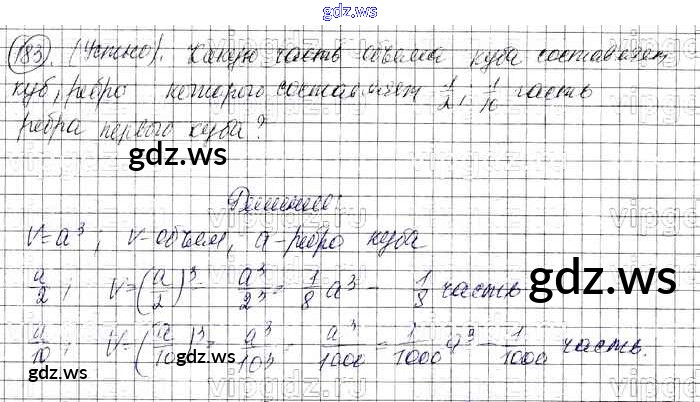 gdz.ws
183. (Устно). Какую часть объема куба составляет
куб, ребро которого составляет 1/2, 1/10 часть
ребра первого куба?
gdz.ws
Решение:
V=a³; V-объем, a-ребро куба
gdz.ws
a/2; V=(a/2)³= a³/2³= 1/8 a³ - 1/8 часть
a/10; V=(a/10)³= a³/10³= a³/1000 = 1/1000 a³ - 1/1000 часть.
gdz.ws
gdz.ws